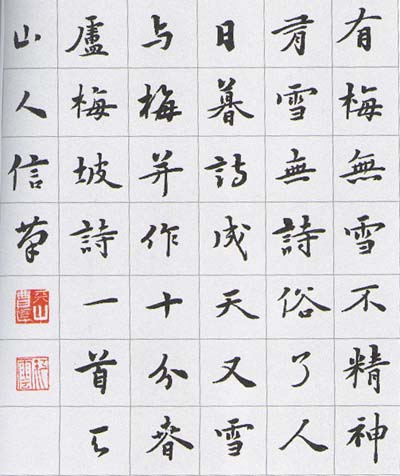 有梅無雪不精神
有雪無詩俗了人
日暮詩成天又雪
与梅并作十分春
盧梅坡詩一首
山人信筆